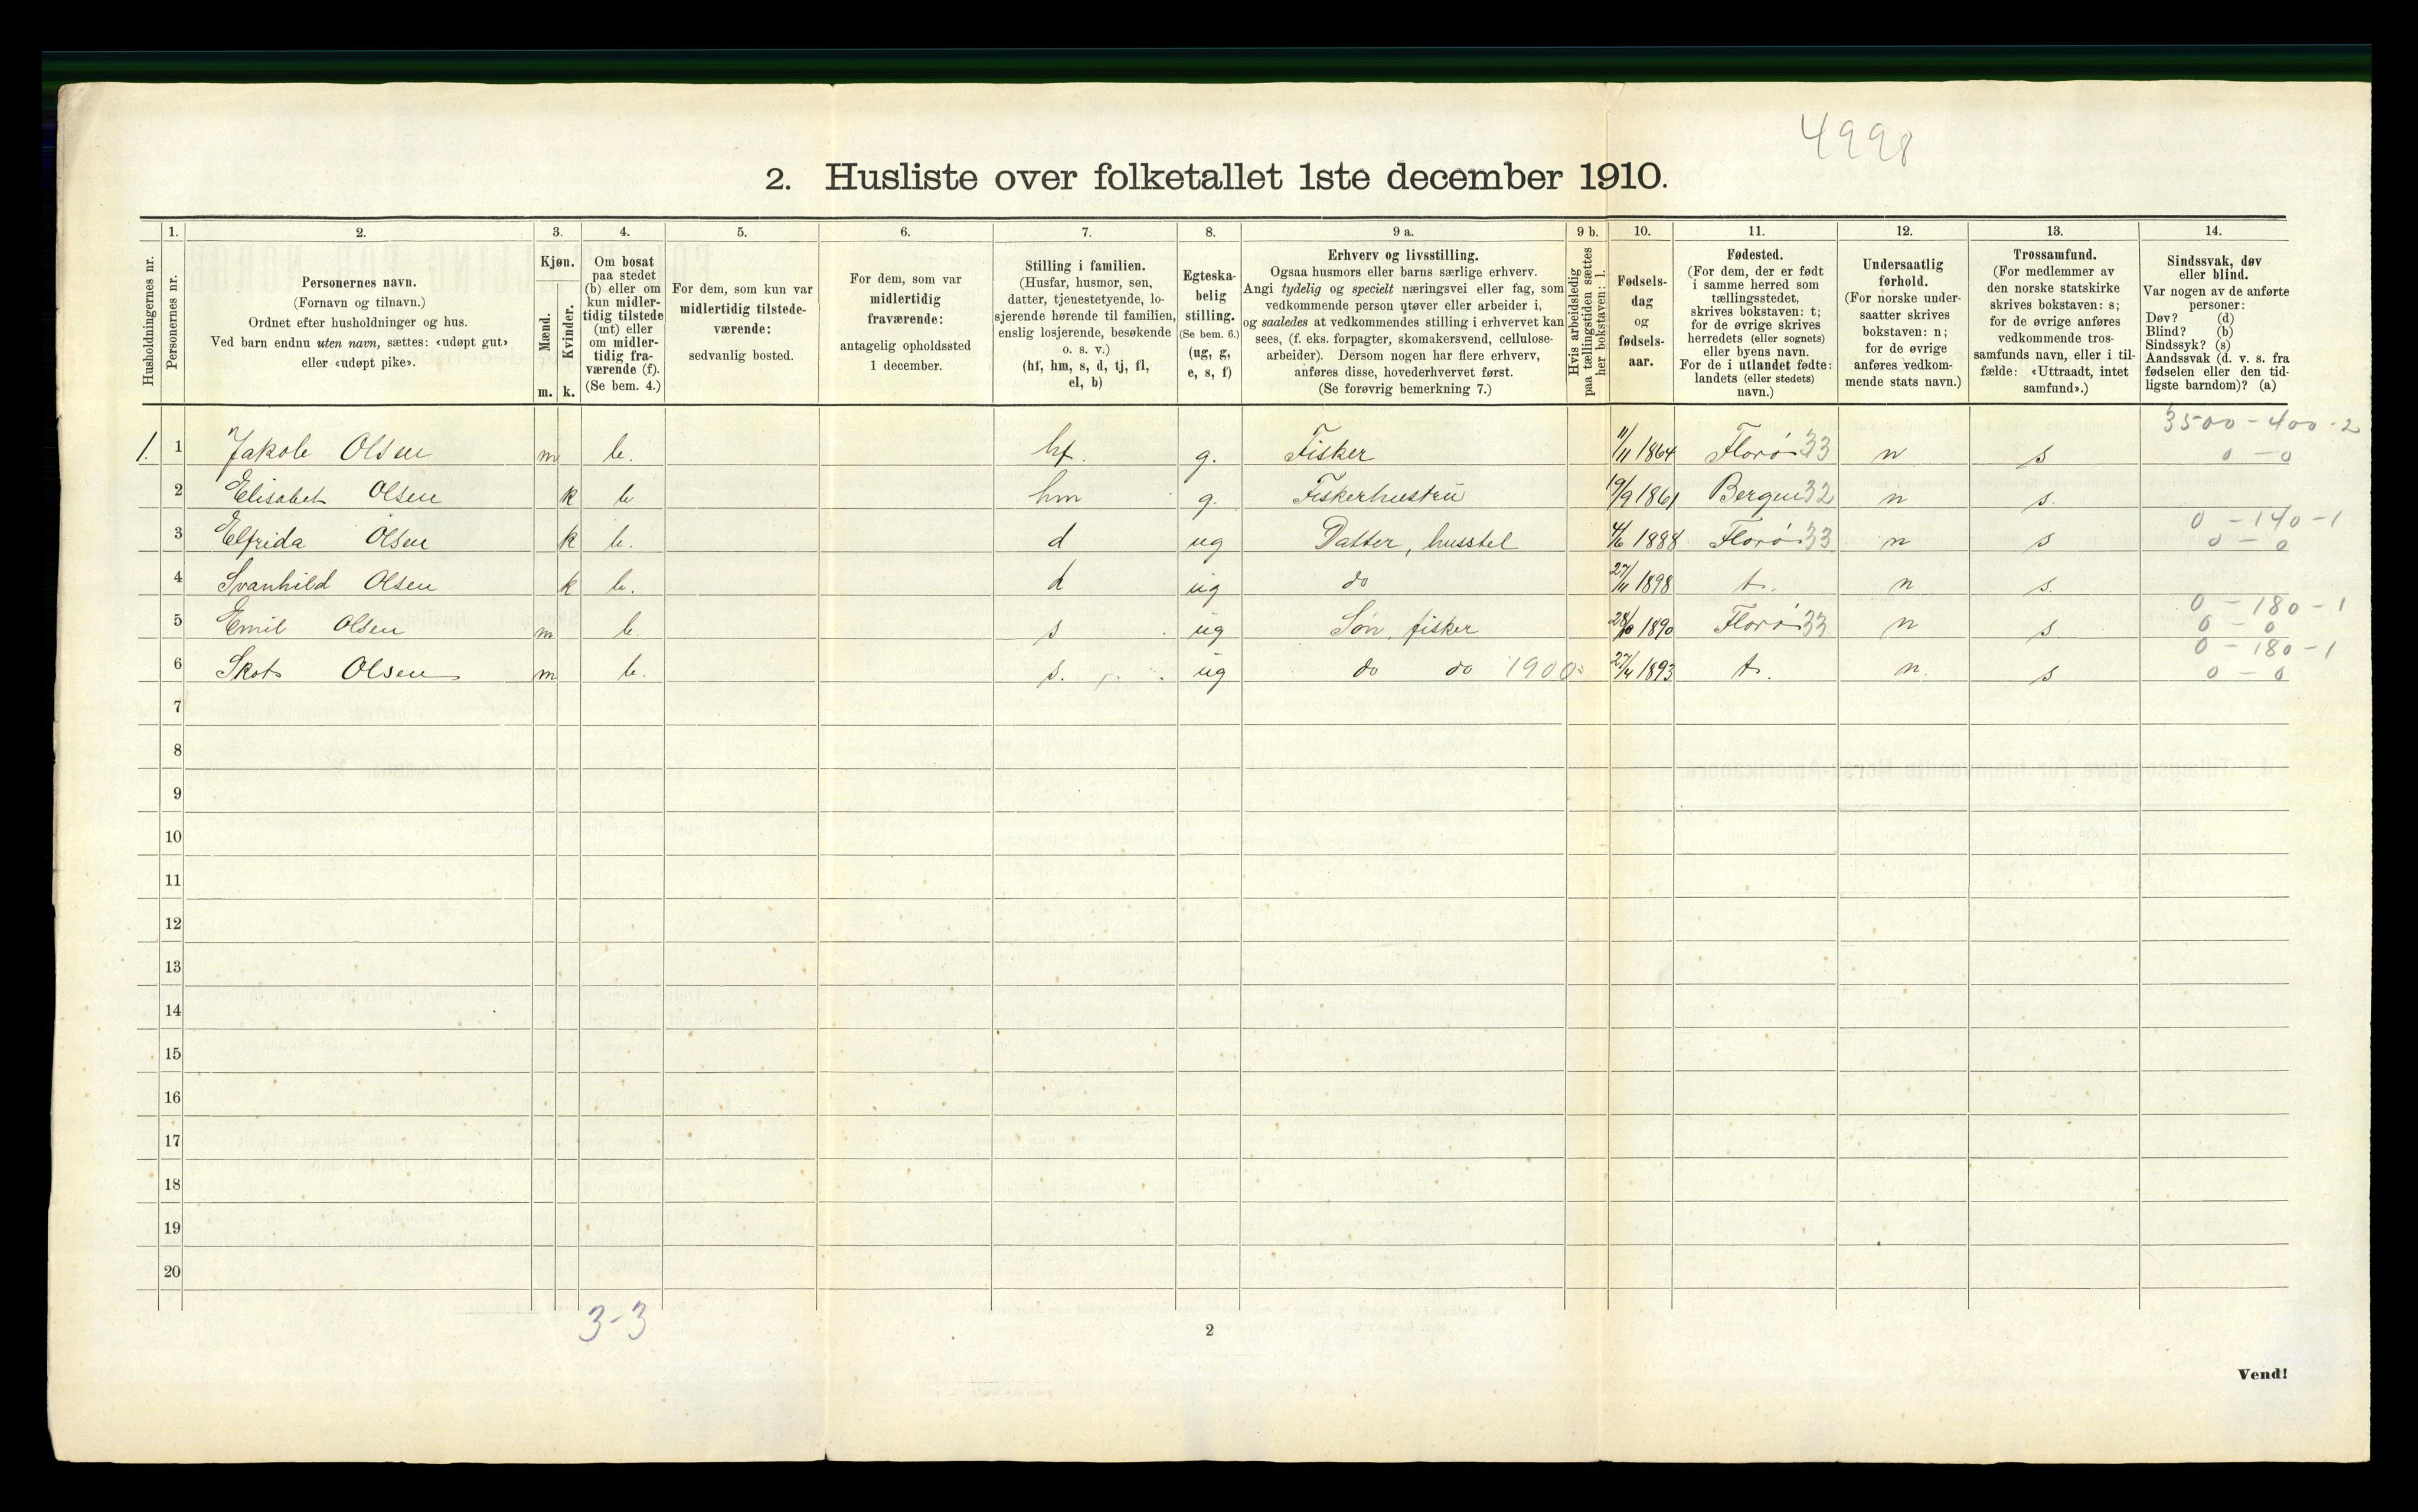 4998
2. Husliste over folketallet 1ste december 1910.
Husholdningernes nr.
1.
Personernes nr.
2.
Personernes navn.
(Fornavn og tilnavn.)
Ordnet efter husholdninger og hus.
Ved barn endnu uten navn, sættes: «udøpt gut»
eller «udøpt pike».
3.
Kjøn.
Mænd.
Kvinder.
m. k.
4.
Om bosat
paa stedet
(b) eller om
kun midler-
tidig tilstede
(mt) eller
om midler-
tidig fra-
værende (f).
(Se bem. 4.)
5.
For dem, som kun var
midlertidig tilstede-
værende:
sedvanlig bosted.
6.
For dem, som var
midlertidig
fraværende:
antagelig opholdssted
1 december.
7.
Stilling i familien.
(Husfar, husmor, søn,
datter, tjenestetyende, lo-
sjerende hørende til familien,
enslig losjerende, besøkende
o. s. v.)
(hf, hm, s, d, tj, fl,
el, b)
8.
Egteska-
belig
stilling.
(Se bem. 6.)
(ug, g,
e, s, f)
9 a.
Erhverv og livsstilling.
Ogsaa husmors eller barns særlige erhverv.
Angi tydelig og specielt næringsvei eller fag, som
vedkommende person utøver eller arbeider i,
og saaledes at vedkommendes stilling i erhvervet kan
sees, (f. eks. forpagter, skomakersvend, cellulose-
arbeider). Dersom nogen har flere erhverv,
anføres disse, hovederhvervet først.
(Se forøvrig bemerkning 7.)
9 b.
Hvis arbeidsledig
paa tællingstiden sættes
her bokstaven: l.
10.
Fødsels-
dag
og
fødsels-
aar.
11.
Fødested.
(For dem, der er født
i samme herred som
tællingsstedet,
skrives bokstaven: t;
for de øvrige skrives
herredets (eller sognets)
eller byens navn.
For de i utlandet fødte:
landets (eller stedets)
navn.)
12.
Undersaatlig
forhold.
(For norske under-
saatter skrives
bokstaven: n;
for de øvrige
anføres vedkom-
mende stats navn.)
13.
Trossamfund.
(For medlemmer av
den norske statskirke
skrives bokstaven: s;
for de øvrige anføres
vedkommende tros-
samfunds navn, eller i til-
fælde: «Uttraadt, intet
samfund».)
14.
Sindssvak, døv
eller blind.
Var nogen av de anførte
personer:
Døv? (d)
Blind? (b)
Sindssyk? (s)
Aandssvak (d. v. s. fra
fødselen eller den tid-
ligste barndom)? (a)
3500 - 400 - 2
1. 1 Jakob Olsen m b. hf. g. Fisker 11/11 1864 Florø 33 n s 0 - 0
2 Elisabet Olsen k b hm g. Fiskerhustru 19/9 1861 Bergen 32 n s.
0 - 140 - 1
3 Elfrida Olsen k b. d ug Datter, husstel 4/6 1888 Florø 33 n s 0 - 0
4 Svanhild Olsen k b. d ug do 27/11 1898 t. n s.
0 - 180 - 1
5 Emil Olsen m b. s ug Søn, fisker 1890 Florø 33 n s 0 - 0
0 - 180 - 1
6 Olsen m b. s. ug do do 1900: 27/4 1893 t. n. s 0 - 0
7
8
9
10
11
12
13
14
15
16
17
18
19
20
3-3
2
Vend!